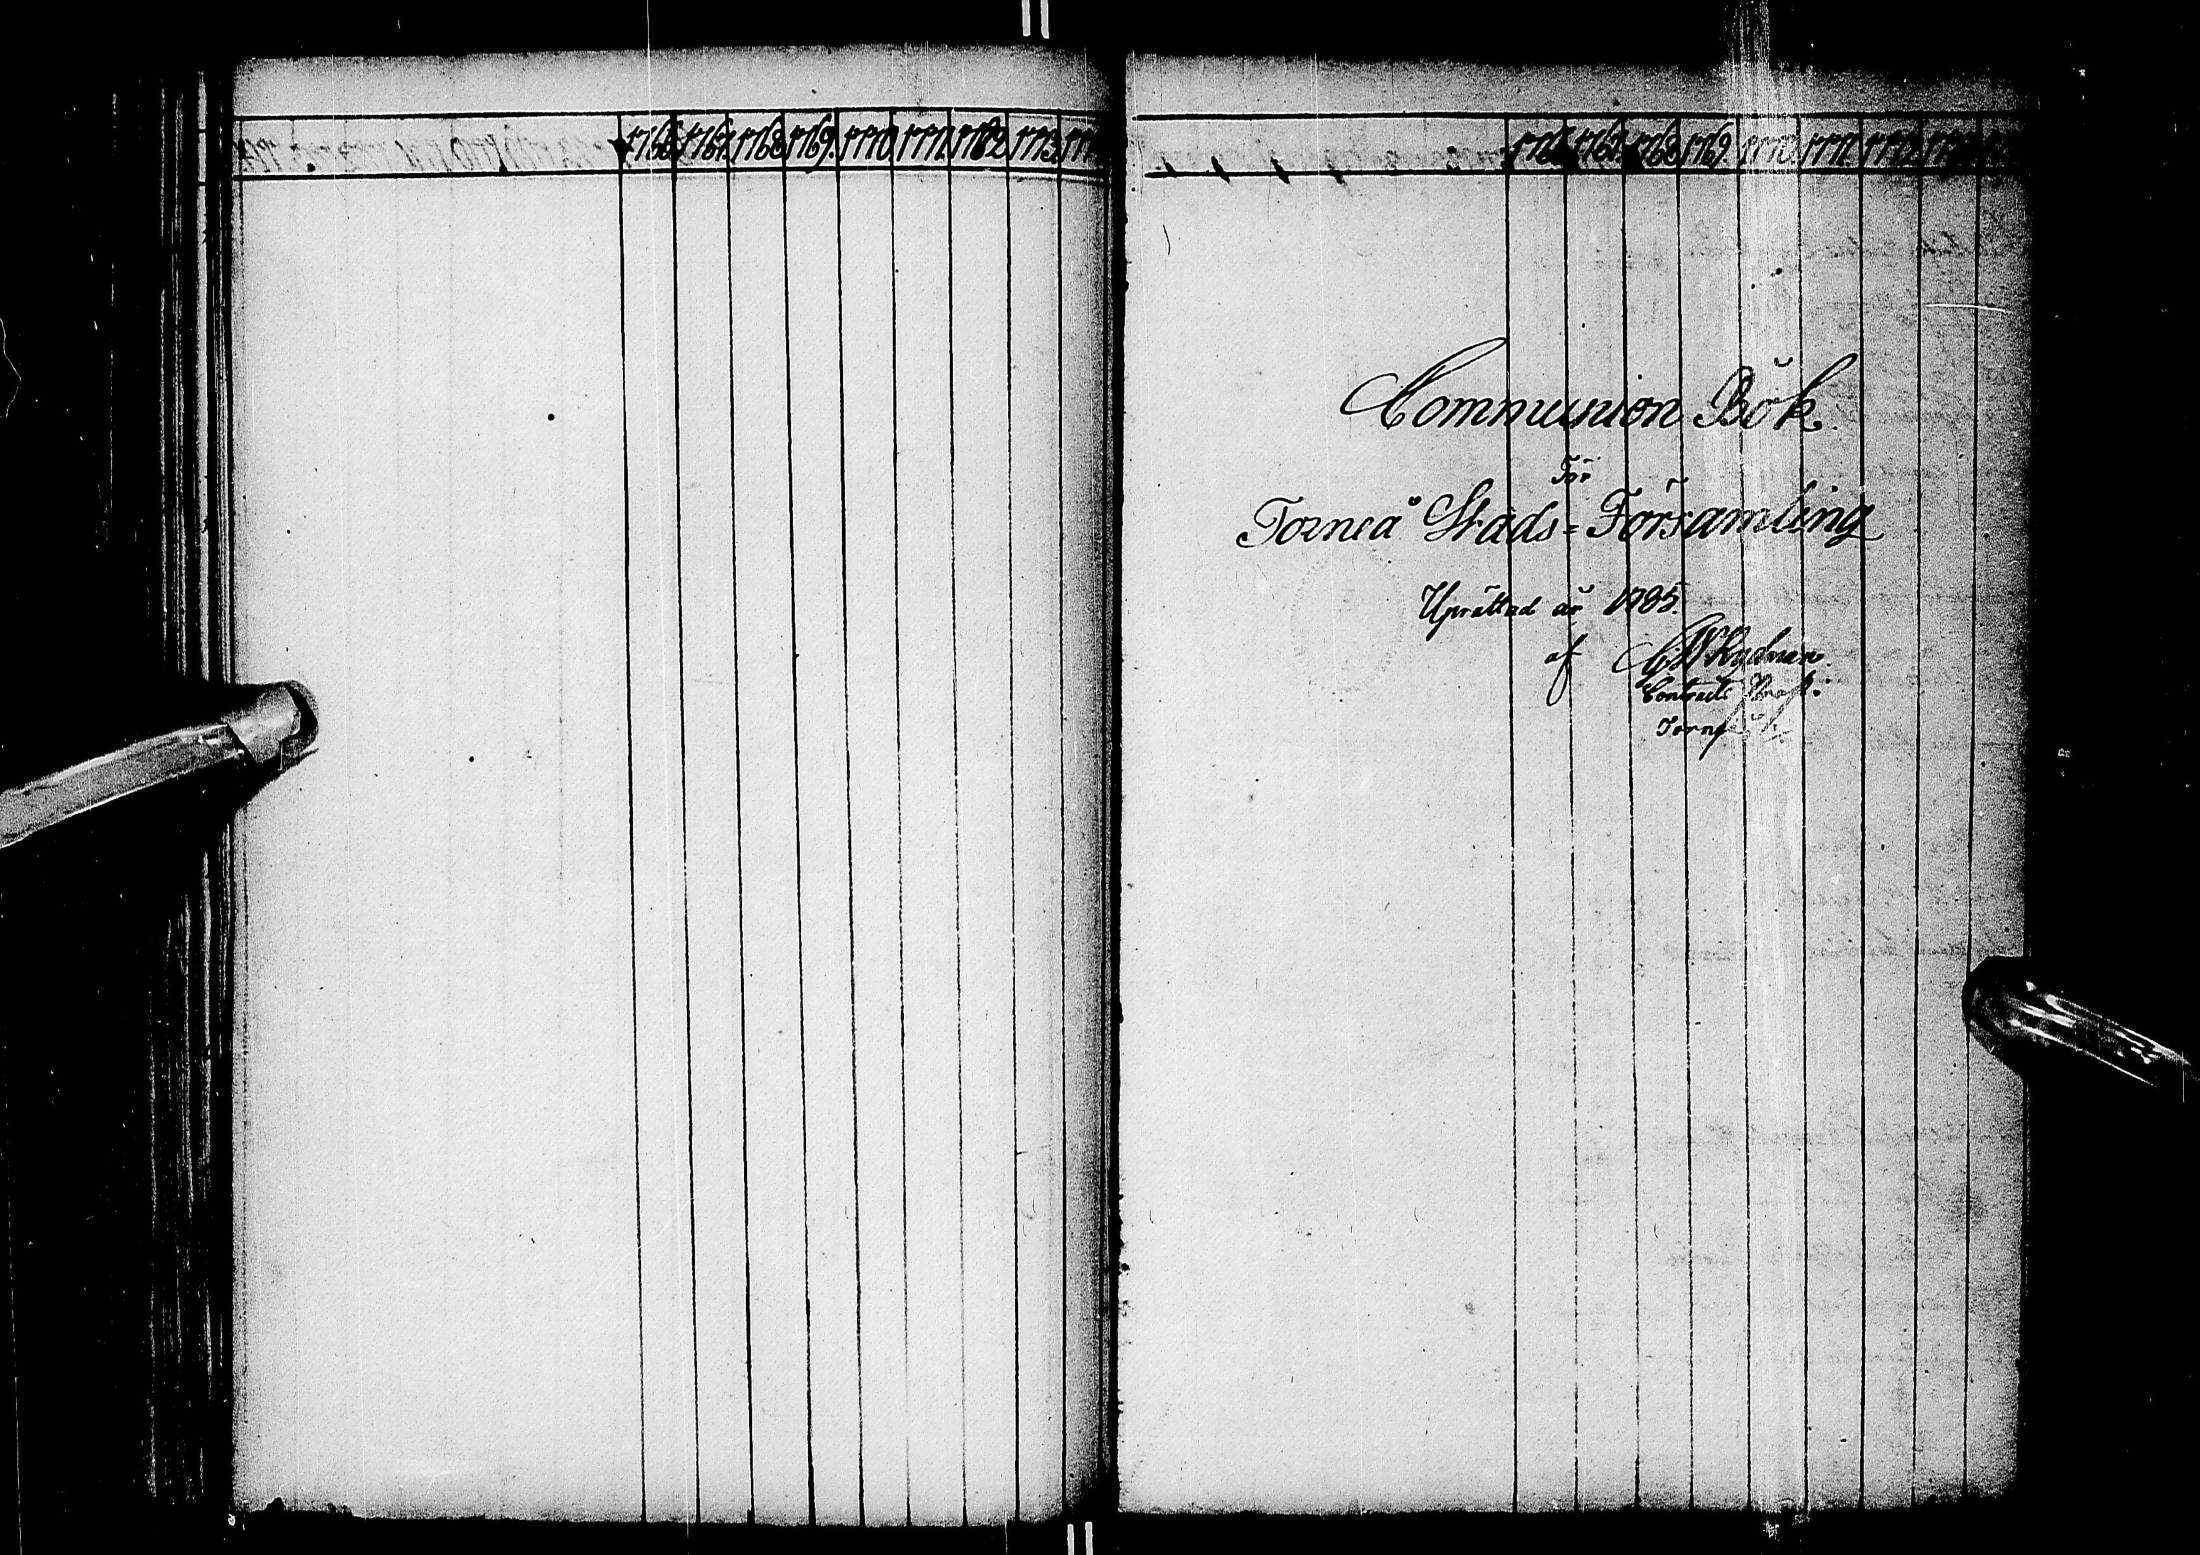 1766. 1767. 1768. 1769. 1770 1771. 1772. 1773. 177
1766. 1767. 1768. 1769. 1770. 1771. 1772.
Communion Bŏk.
För
Torneå Stads=Församling
Uprättad år 1785.
af
Contracts Prost.